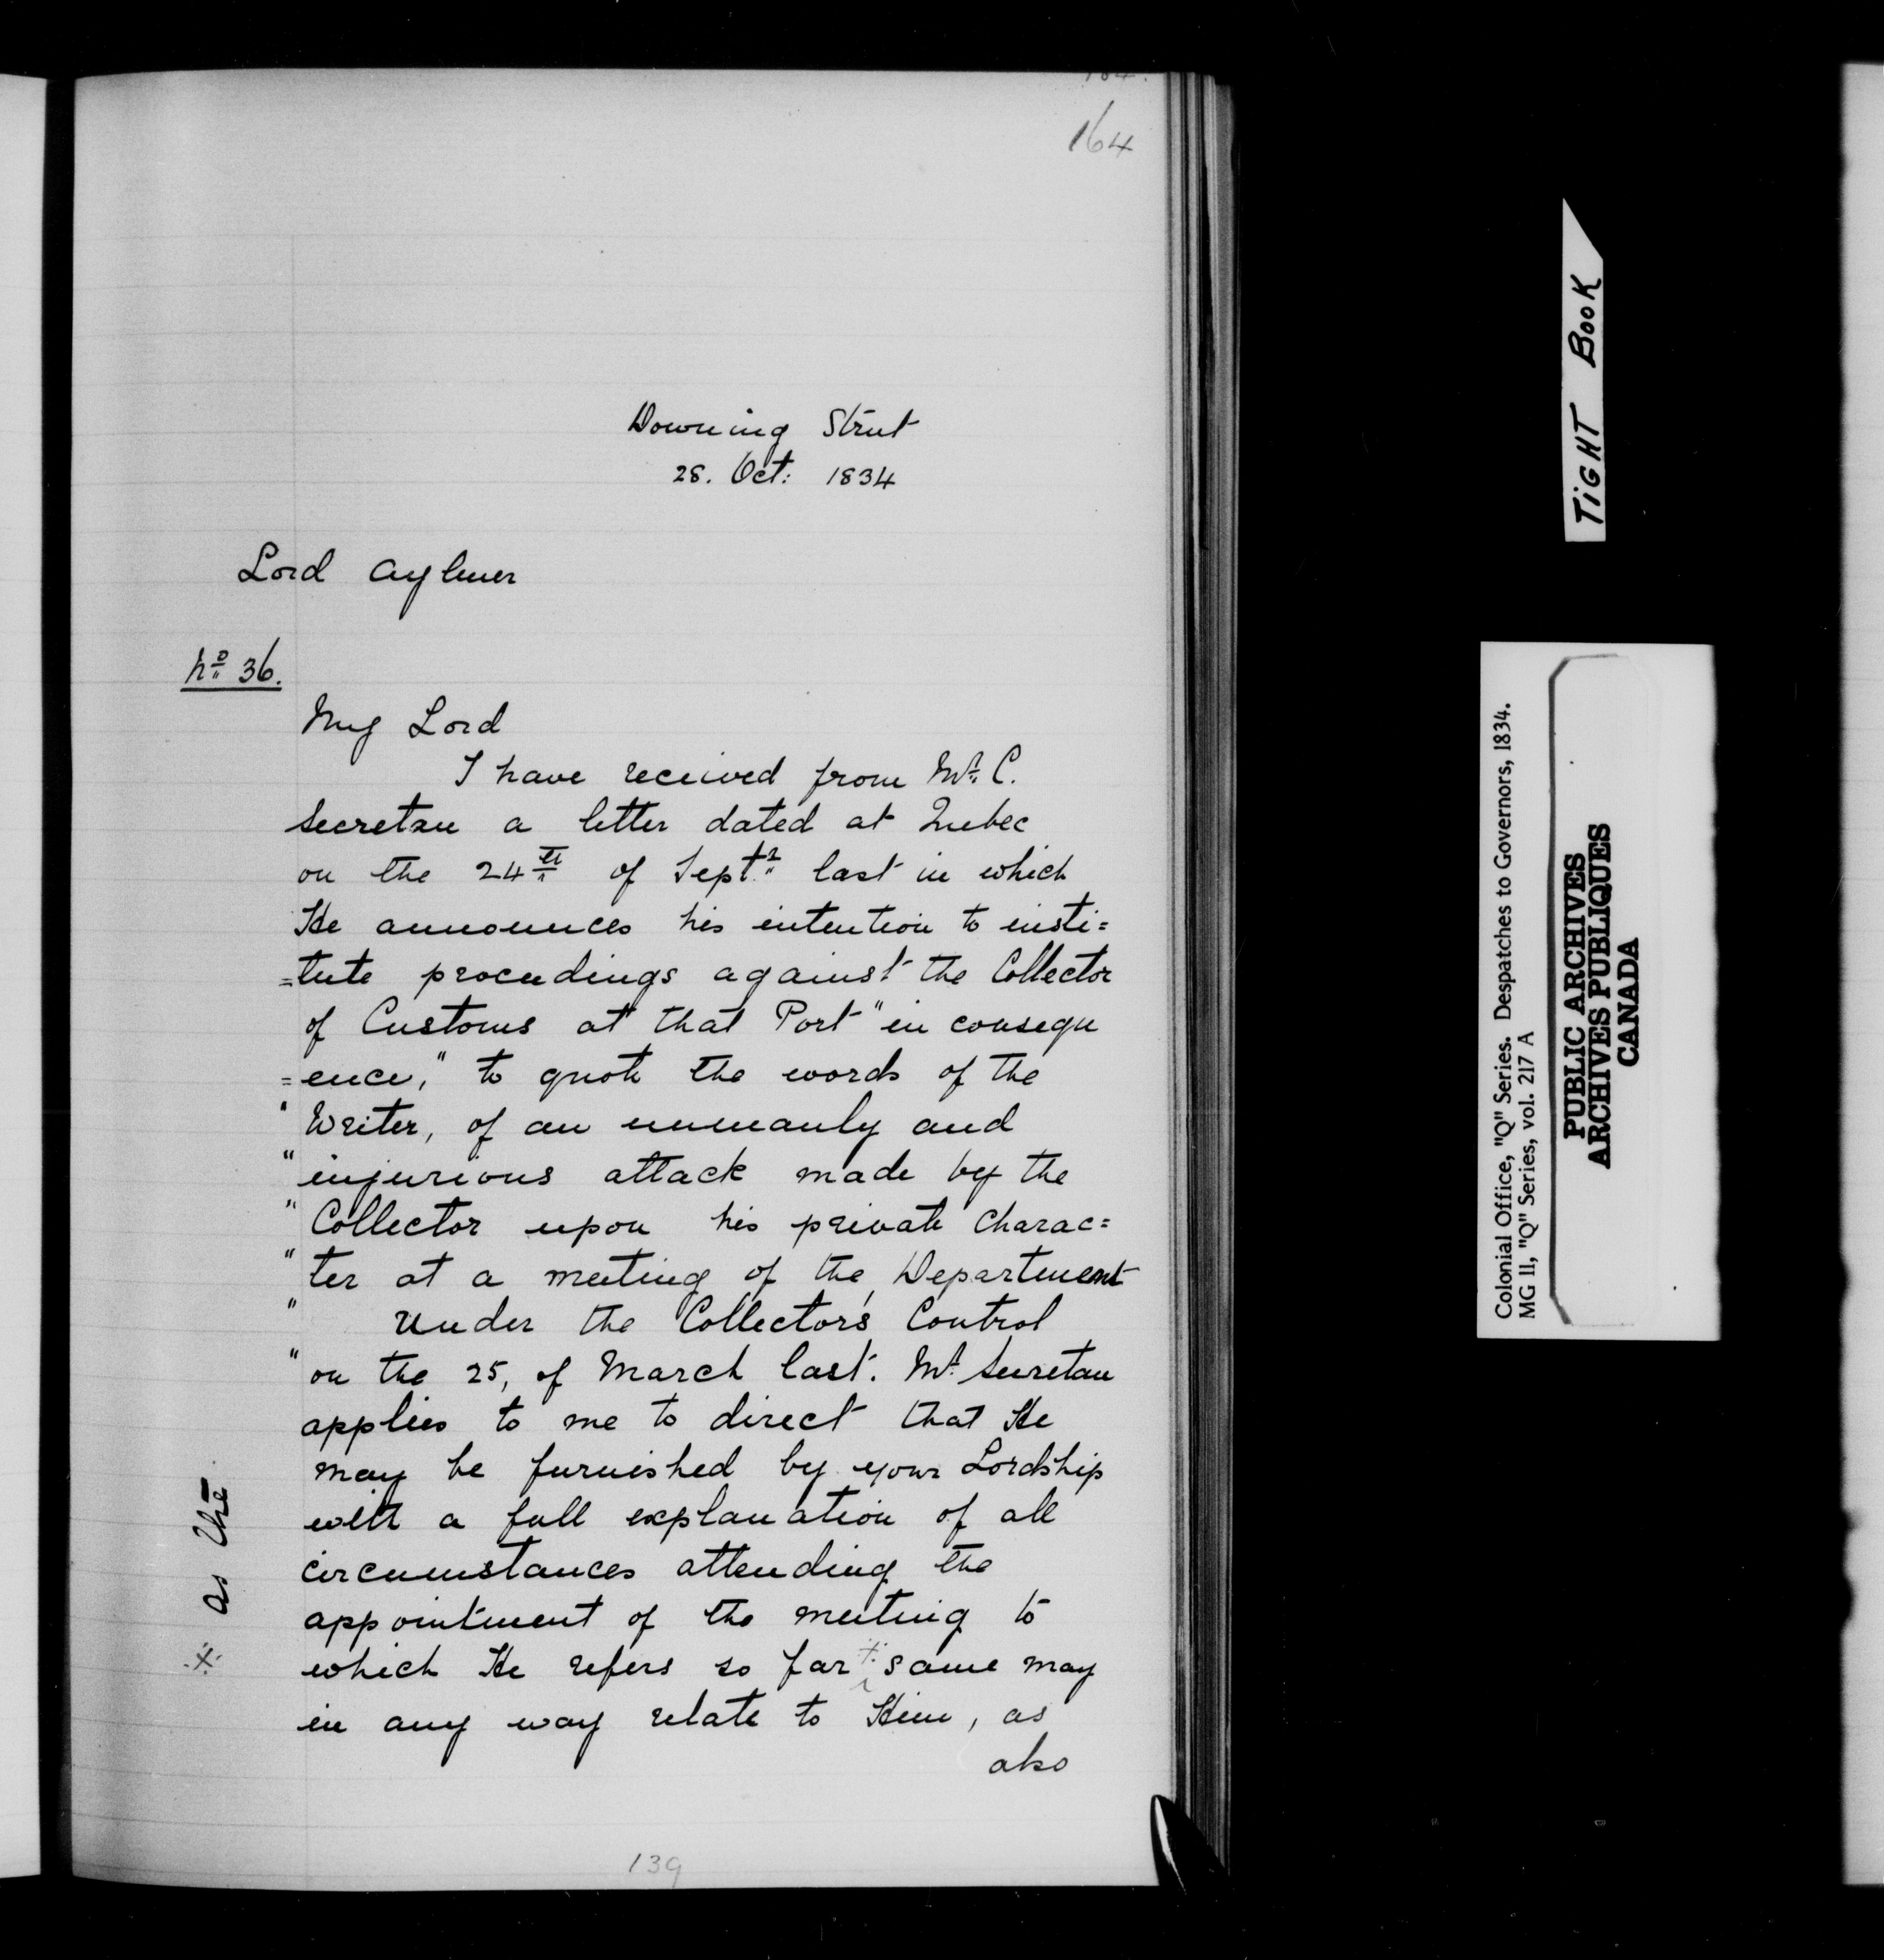 164
Downing Street
28. Oct: 1834
Lord Aylmer
No 36.
My Lord
I have received from Mr. C.
Secretan a letter dated at Quebec
on the 24th of Septr last in which
He announces his intention to insti=
=tute proceedings against the Collector
of Customs at that Port "in consequ
=ence," to quote the words of the
" Writer, of an unmanly and
" injurious attack made by the
" Collector upon his private charac=
" ter at a meeting of the Department
" under the Collector's Control
" on the 25, of March last. Mr Secretan
applies to me to direct that He
may be furnished by your Lordship
with a full explanation of all
circumstances attending the
appointment of the meeting to
which He refers so far ⁜ same may
in any way relate to Him, as
also
⁜ as the
139
TIGHT BOOK
Colonial Office, "Q" Series. Despatches to Governors, 1834.
MG 11, "Q" Series, vol. 217 A
PUBLIC ARCHIVES
ARCHIVES PUBLIQUES
CANADA